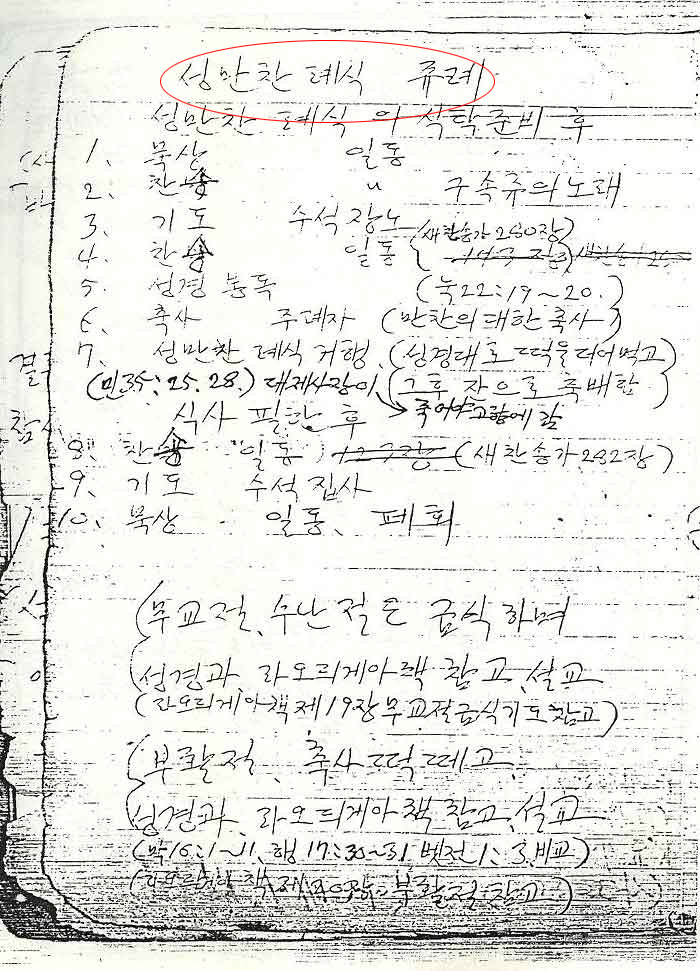 성만찬 례식 류례
성만찬 례식 의 식탁준비 후
1. 묵상 일동
2. 찬송 〃 구속주의 노래
3. 기도 수석 장노
4. 찬송 일동 (새찬송가 280장)
5. 성경 봉독 (눅22:19~20.)
6. 축사 주례자 (만찬의 대한 축사)
7. 성만찬 례식 거행. (성경대로 떡을 떼어 먹고
(민35:25.28.) 대제사장이 그후 잔으로 축배함)
죽어야 고향에 감
식사 필한 후
8. 찬송 일동 (새찬송가 282장)
9. 기도 수석 집사
10. 묵상 일동. 폐회
(무교절. 수난절은 금식하며
(성경과 라오듸게아책 참고. 설교
(라오듸게아책 제19장 무교절금식기도 참고)
(부활절. 축사 떡떼고.
성경과. 라오듸게아책 참고. 설교
(막16:1~11. 행17:30~31 벧전1:3. 비교)
부활절 참고)